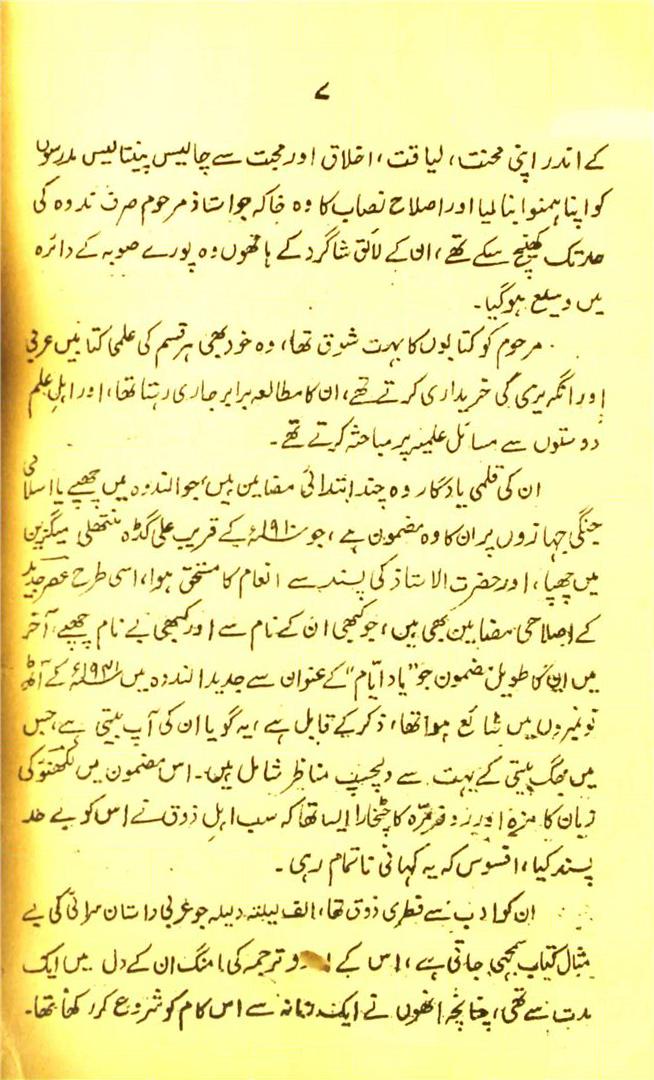 ۷
کے اندر اپنی محنت، لیاقت، اخلاق اور محبت سے چالیس پینتالیس مدرسوں
کو اپنا ہمنوا بنا لیا اور اصلاح نصاب کا وہ خاکہ جو استاذ مرحوم صرف ندوہ کی
حد تک کھینچ سکے تھے، ان کے لائق شاگرد کے ہاتھوں وہ پورے صوبہ کے دائرہ
میں وسیع ہو گیا۔
مرحوم کو کتابوں کا بہت شوق تھا، وہ خود بھی ہر قسم کی علمی کتابیں عربی
اور انگریزی کی خریداری کرتے تھے، ان کا مطالعہ برابر جاری رہتا تھا، اور اہلِ علم
دوستوں سے مسائل علمیہ پر مباحثہ کرتے تھے۔
ان کی قلمی یادگار وہ چند ابتدائی مضامین ہیں، جو الندوہ میں چھپے یا اسلامی
جنگی جہازوں پر ان کا وہ مضمون ہے، جو ۱۹۱۰ء کے قریب علی گڈہ منتھلی میگزین
میں چھپا، اور حضرت الاستاذ کی پسند سے انعام کا مستحق ہوا، اسی طرح عصر جدید
کے اصلاحی مضامین بھی ہیں، جو کبھی ان کے نام سے اور کبھی بے نام چھپے، آخر
میں ان کا طویل مضمون جو "یاد ایّام" کے عنوان سے جدید الندوہ میں کے آٹھ
نو نمبروں میں شائع ہوا تھا، ذکر کے قابل ہے، یہ گویا ان کی آپ بیتی ہے، جس
میں جگ بیتی کے بہت سے دلچسپ مناظر شامل ہیں۔ اس مضمون میں لکھنؤ کی
زبان کا مزہ اور روزمرّہ کا چٹخارا ایسا تھا کہ سب اہلِ ذوق نے اس کو بے حد
پسند کیا، افسوس کہ یہ کہانی ناتمام رہی۔
ان کو ادب سے فطری ذوق تھا، الف لیلتہ ولیلہ جو عربی داستان سرائی کی بے
مثال کتاب سمجھی جاتی ہے، اس کے ترجمہ کی امنگ ان کے دل میں ایک
مدت سے تھی، چنانچہ انھوں نے ایک زمانہ سے اس کام کو شروع کر رکھا تھا۔